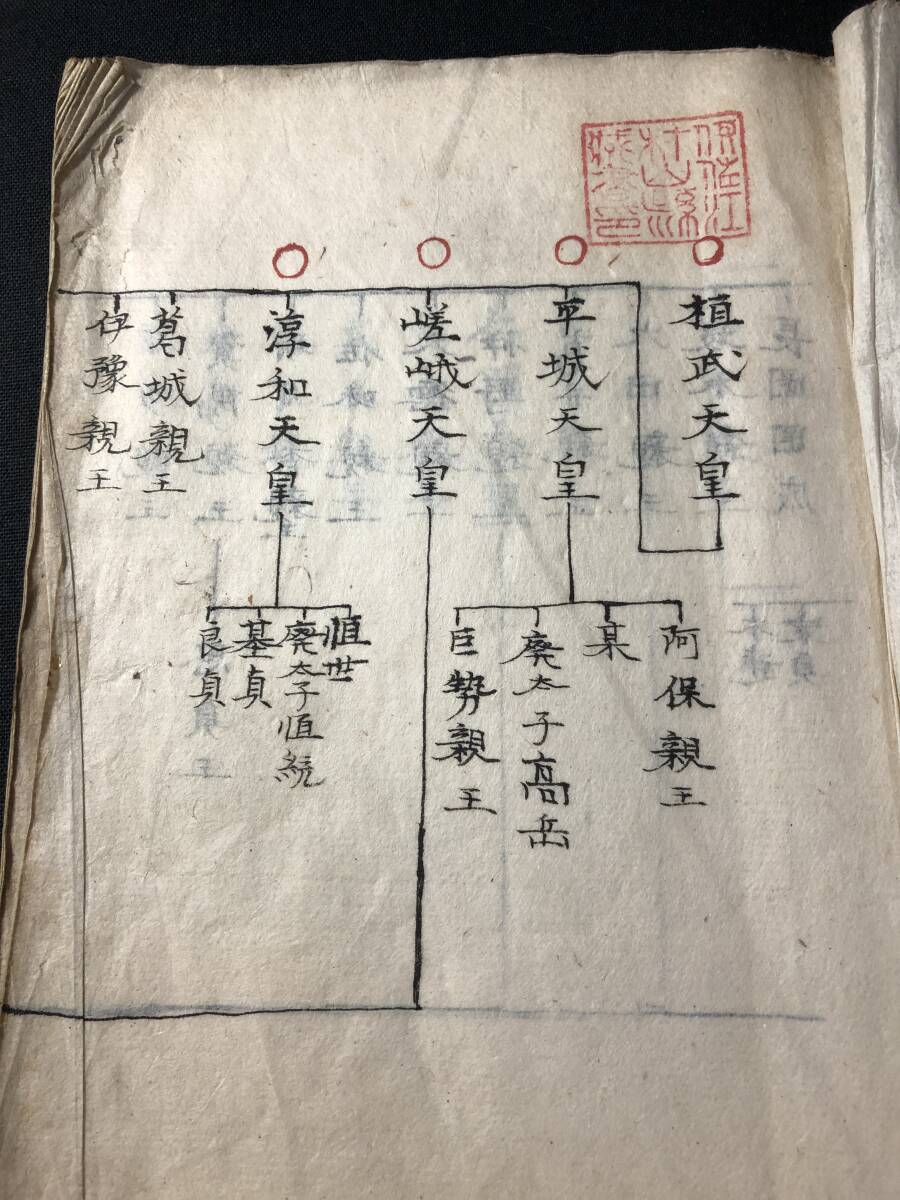 植武天皇
平城天皇
嵯峨天皇
淳和天皇
葛城親王
伊豫親王
阿保親王
某
廃太子高岳
巨勢親王
恒世
廃太子恒統
基貞
良貞